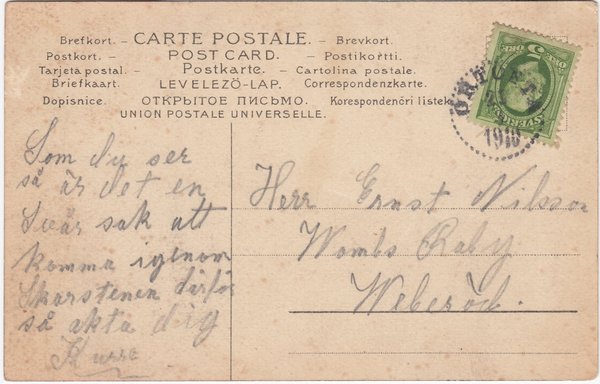 Brefkort. – CARTE POSTALE. – Brevkort.
Postkort. – POST CARD. – Postikortti.
Tarjeta postal. – Postkarte. – Cartolina postale.
Briefkaart. – LEVELEZŐ-LAP. – Correspondenzkarte.
Dopisnice. – ОТКРЫТОЕ ПИСЬМО. – Korespondenčri listek.
UNION POSTALE UNIVERSELLE.
5 ÖRE
SVERIGE
1910
Som du ser
så är det en
svår sak att
komma igenom
skorstenen därför
så akta dig
Herr Ernst Nilsson
Wombs Raby
Weberöd.